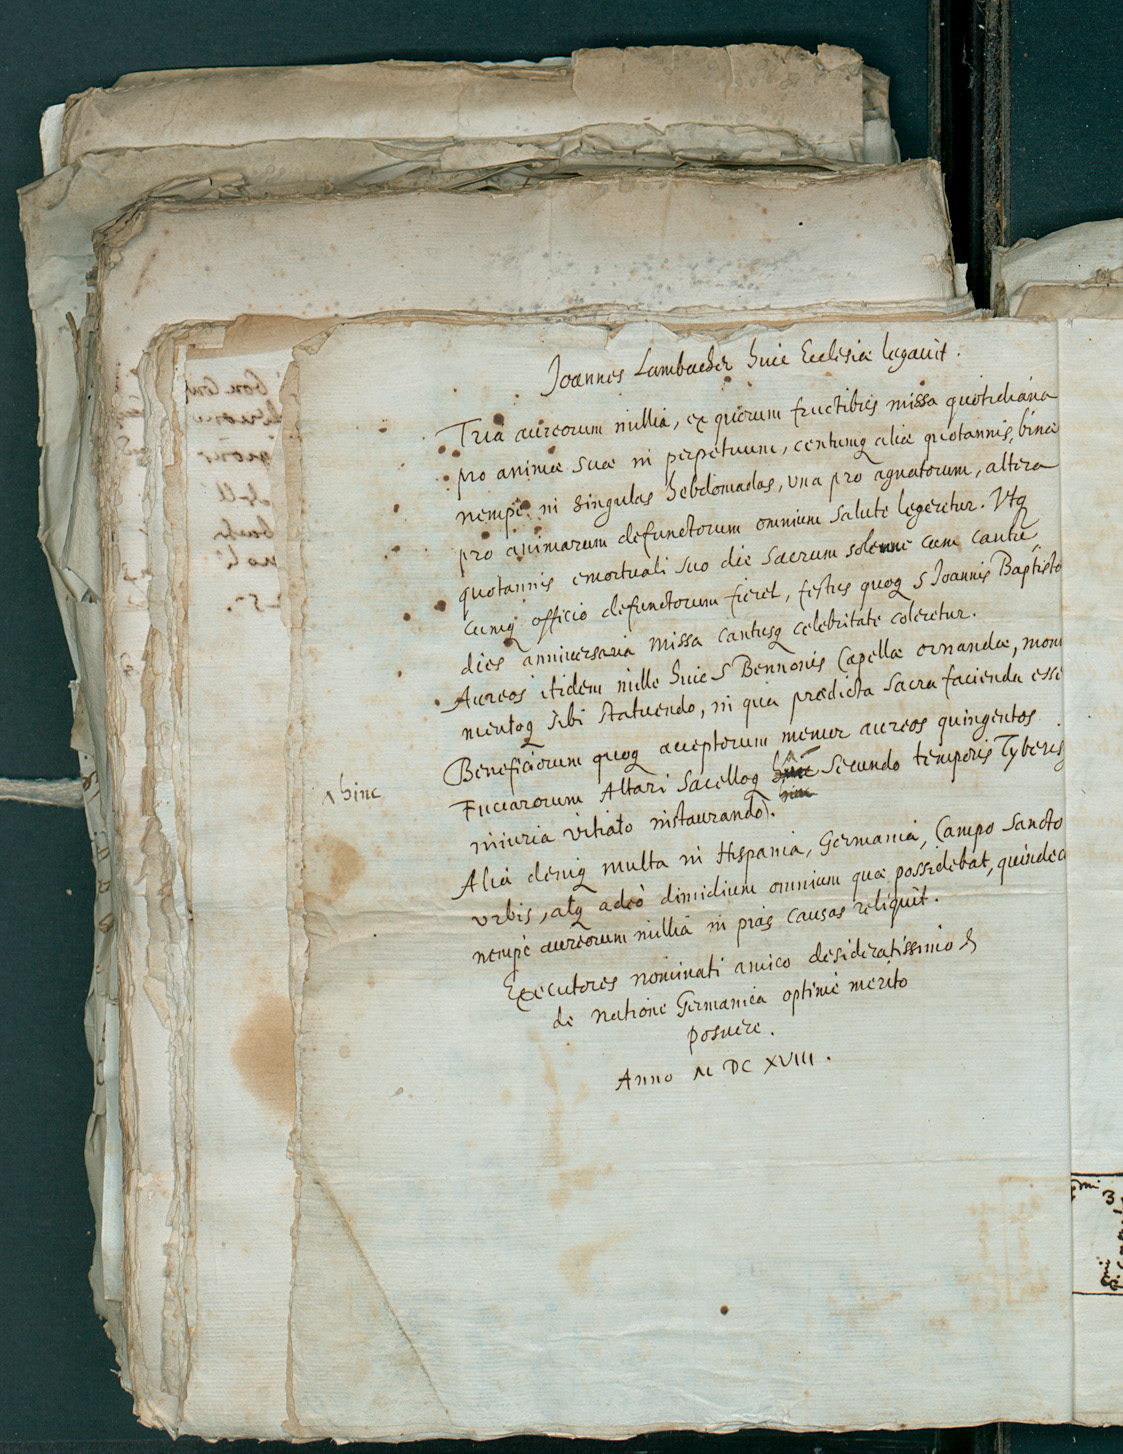 Joannes Lambacher huic Ecclesiæ legavit.
Tria aureorum millia, ex quorum fructibus missa quotidiana
pro animæ suæ in perpetuum, centumq aliæ quotannis, binæ
nempe in singulas hebdomadas, una pro agnatorum, altera
pro animarum defunctorum omnium salute legeretur. Vtq
quotannis emortuali suo die sacrum solenne cum cantu,
cumq officio defunctorum fieret, festus quoq S Joannis Baptistæ
dies anniversaria missa cantusq celebritate coleretur.
Aureos itidem mille huic S Bennonis Capellæ ornandæ, monu
mentoq sibi statuendo, in qua prædicta sacra facienda esse
Beneficiorum quoq acceptorum memor aureos quingentos
Fuccarorum Altari Sacelloq secundo temporis Tyberis
^ hinc
iniuria vitiato instaurando.
Alia deniq multa in Hispania, Germania, Campo Sancto
urbis, atq adeò dimidium omnium quæ possidebat, quindec
nempè aureorum millia in pias causas reliquit.
Executores nominati amico desideratissimo &
de natione Germanica optimè merito
posuere.
Anno M DC XVIII.